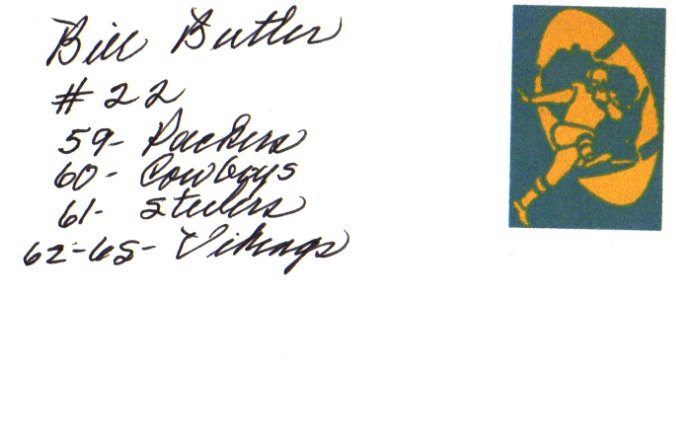 Bill Butler
# 22
59- Packers
60- Cowboys
61- Steelers
62-65- Vikings